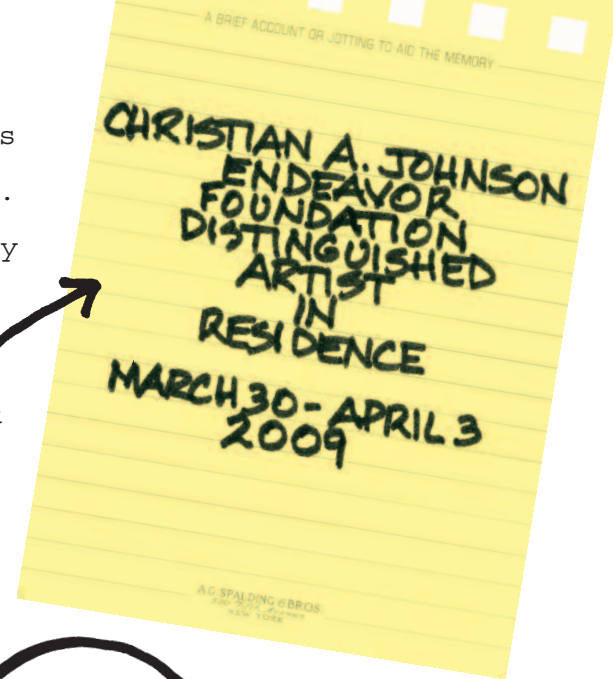 A BRIEF ACCOUNT OR JOTTING TO AID THE MEMORY
s
.
y
CHRISTIAN A. JOHNSON
ENDEAVOR
FOUNDATION
DISTINGUISHED
ARTIST
IN
RESIDENCE
MARCH 30 - APRIL 3
2009
A.G. SPALDING & BROS
520 Fifth Avenue
NEW YORK